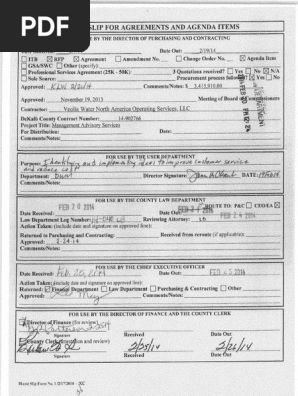 PDF
SLIP FOR AGREEMENTS AND AGENDA ITEMS
BY THE DIRECTOR OF PURCHASING AND CONTRACTING
Date Out: 2/19/14
ITB RFP Agreement Amendment No. Change Order No. Agenda Item
GSA/NWC Other (specify)
Professional Services Agreement (25K - 50K) 3 Quotations received? Yes No N/A
Sole Source: Procurement process followed? Yes No
Approved: Comments/Notes: $ 3,415,910.00
Approved: November 19, 2013 Meeting of Board of Commissioners
Contractor: Veolia Water North America Operating Services, LLC
DeKalb County Contract Number: 14-902766
Project Title: Management Advisory Services
For Distribution: Date:
Comments/Notes:
FOR USE BY THE USER DEPARTMENT
Purpose: Identifying and implementing ideas to improve customer service
and reduce cost
Department: Director Signature: DATE:
Comments/Notes:
FOR USE BY THE COUNTY LAW DEPARTMENT
FEB 20 2014 ROUTE TO: P&C CEO/EA
Date Received: Date Out: FEB 24 2014
Law Department Log Number: Reviewing Attorney:
Action Taken: (include date and signature on approval)
Returned to Purchasing and Contracting: Received from reroute (if applicable):
Approved: 2-24-14
Comments/Notes:
FOR USE BY THE CHIEF EXECUTIVE OFFICER
Date Received: Date Out: FEB 25 2014
Action Taken: (include date and signature on approval)
Returned: Finance Department Law Department Purchasing & Contracting Other
Approved: Comments/Notes:
FOR USE BY THE DIRECTOR OF FINANCE AND THE COUNTY CLERK
Director of Finance (for review)
Signature Received Date Out
County Clerk (execution and review)
2/25/14 2/26/14
Signature Received Date Out